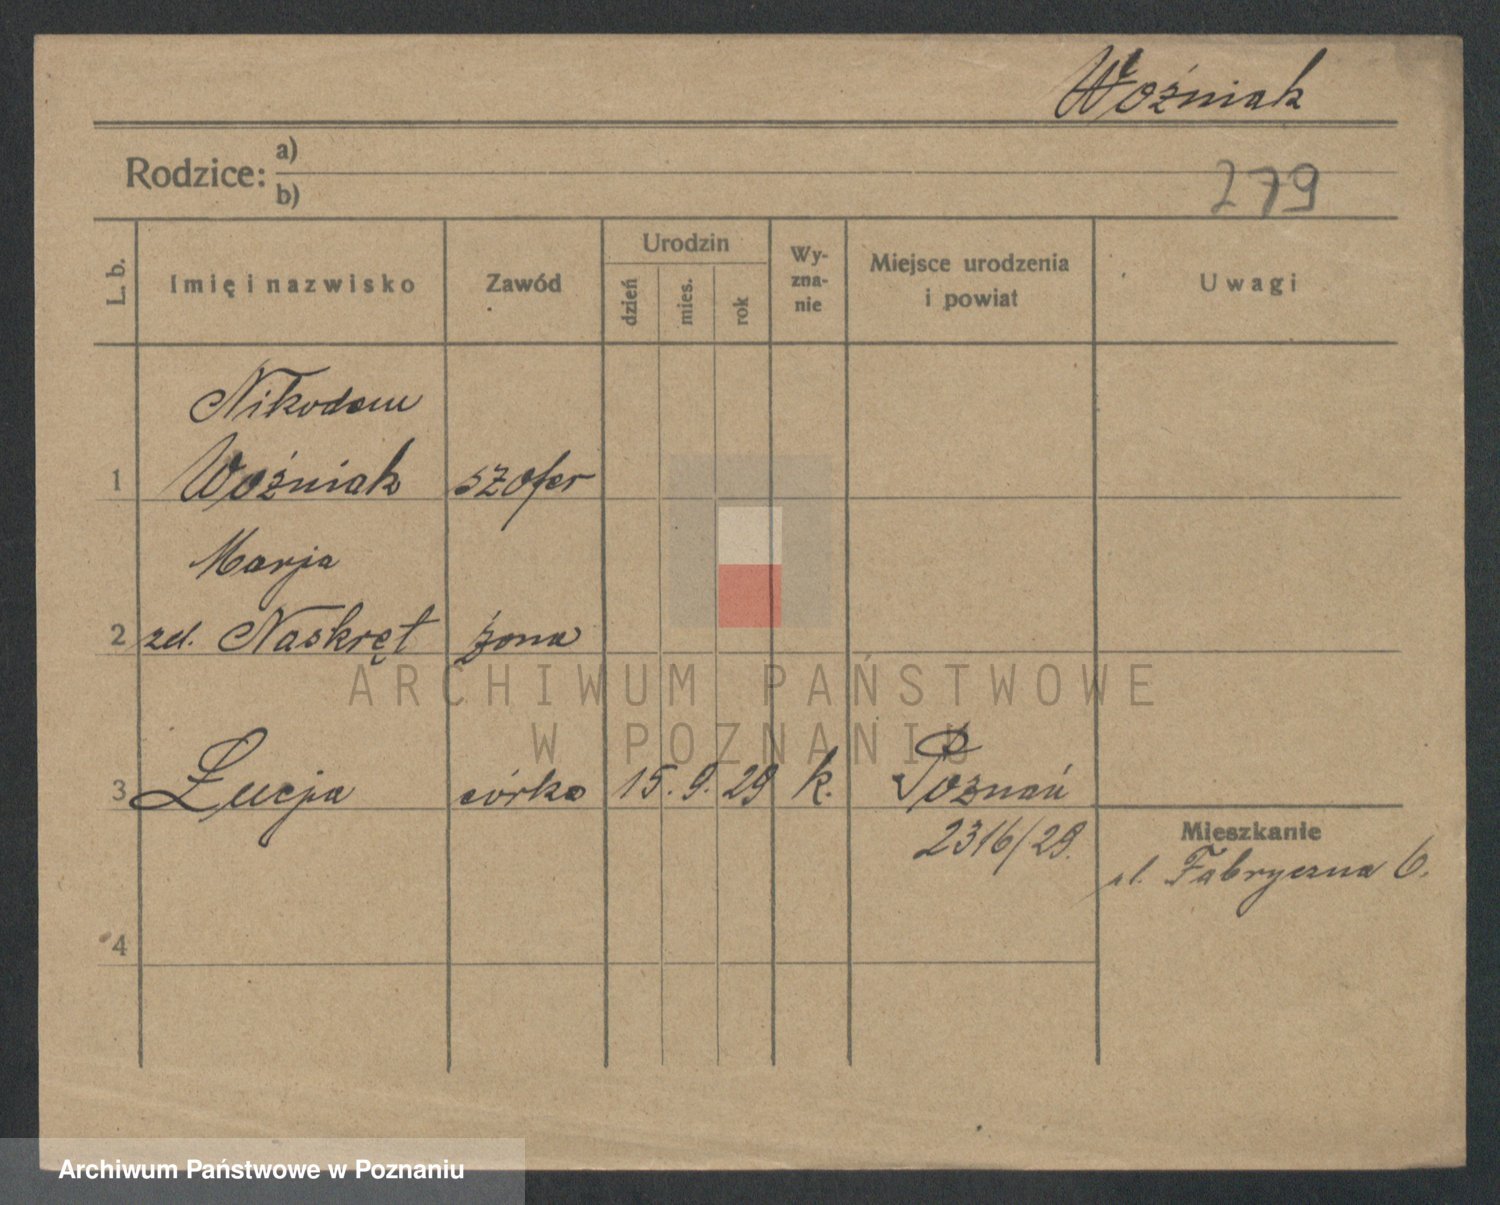 Woźniak
Rodzice: a)
b)
279
L. b.
Imię i nazwisko
Zawód
Urodzin
dzień
mies.
rok
Wy-
zna-
nie
Miejsce urodzenia
i powiat
Uwagi
Nikodem
1 Woźniak szofer
Marja
2 zd. Naskręt żona
ARCHIWUM PAŃSTWOWE
W POZNANIU
3 Łucja córka 15. 9. 29 k. Poznań
2316/29.
Mieszkanie
ul. Fabryczna 6.
4
Archiwum Państwowe w Poznaniu